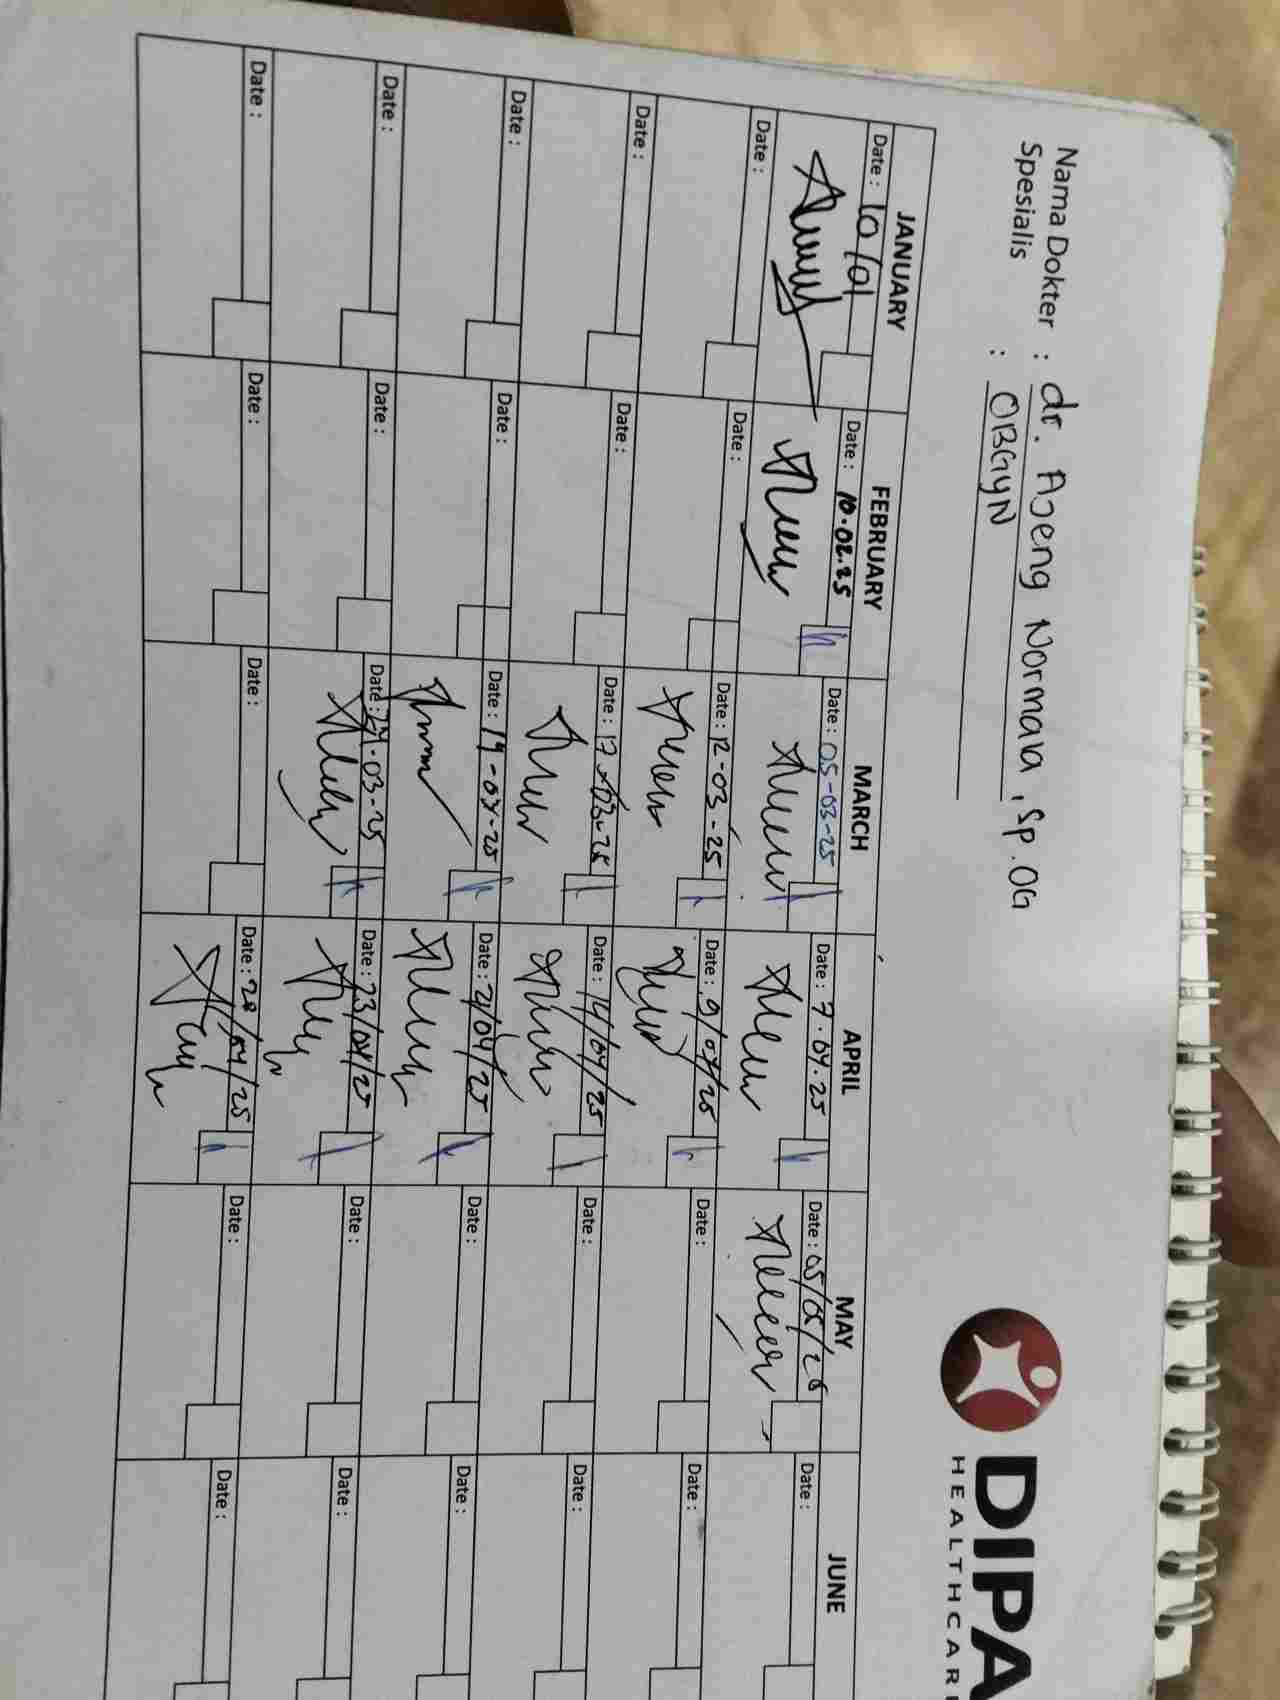 Nama Dokter : dr. Ajeng Normala, Sp.OG
Spesialis : OBGYN
DIPA
HEALTHCAR
JANUARY FEBRUARY MARCH APRIL MAY JUNE
Date : 10/01 Date : 10.02.25 Date : 05-03-25 Date : 7.04.25 Date : 05/05/25 Date :
Date : Date : Date : 12-03-25 Date : 9/04/25 Date : Date :
Date : Date : Date : 17-03-25 Date : 14/04/25 Date : Date :
Date : Date : Date : 19-03-25 Date : 21/04/25 Date : Date :
Date : Date : Date : 24-03-25 Date : 23/04/25 Date : Date :
Date : Date : Date : Date : 28/04/25 Date : Date :